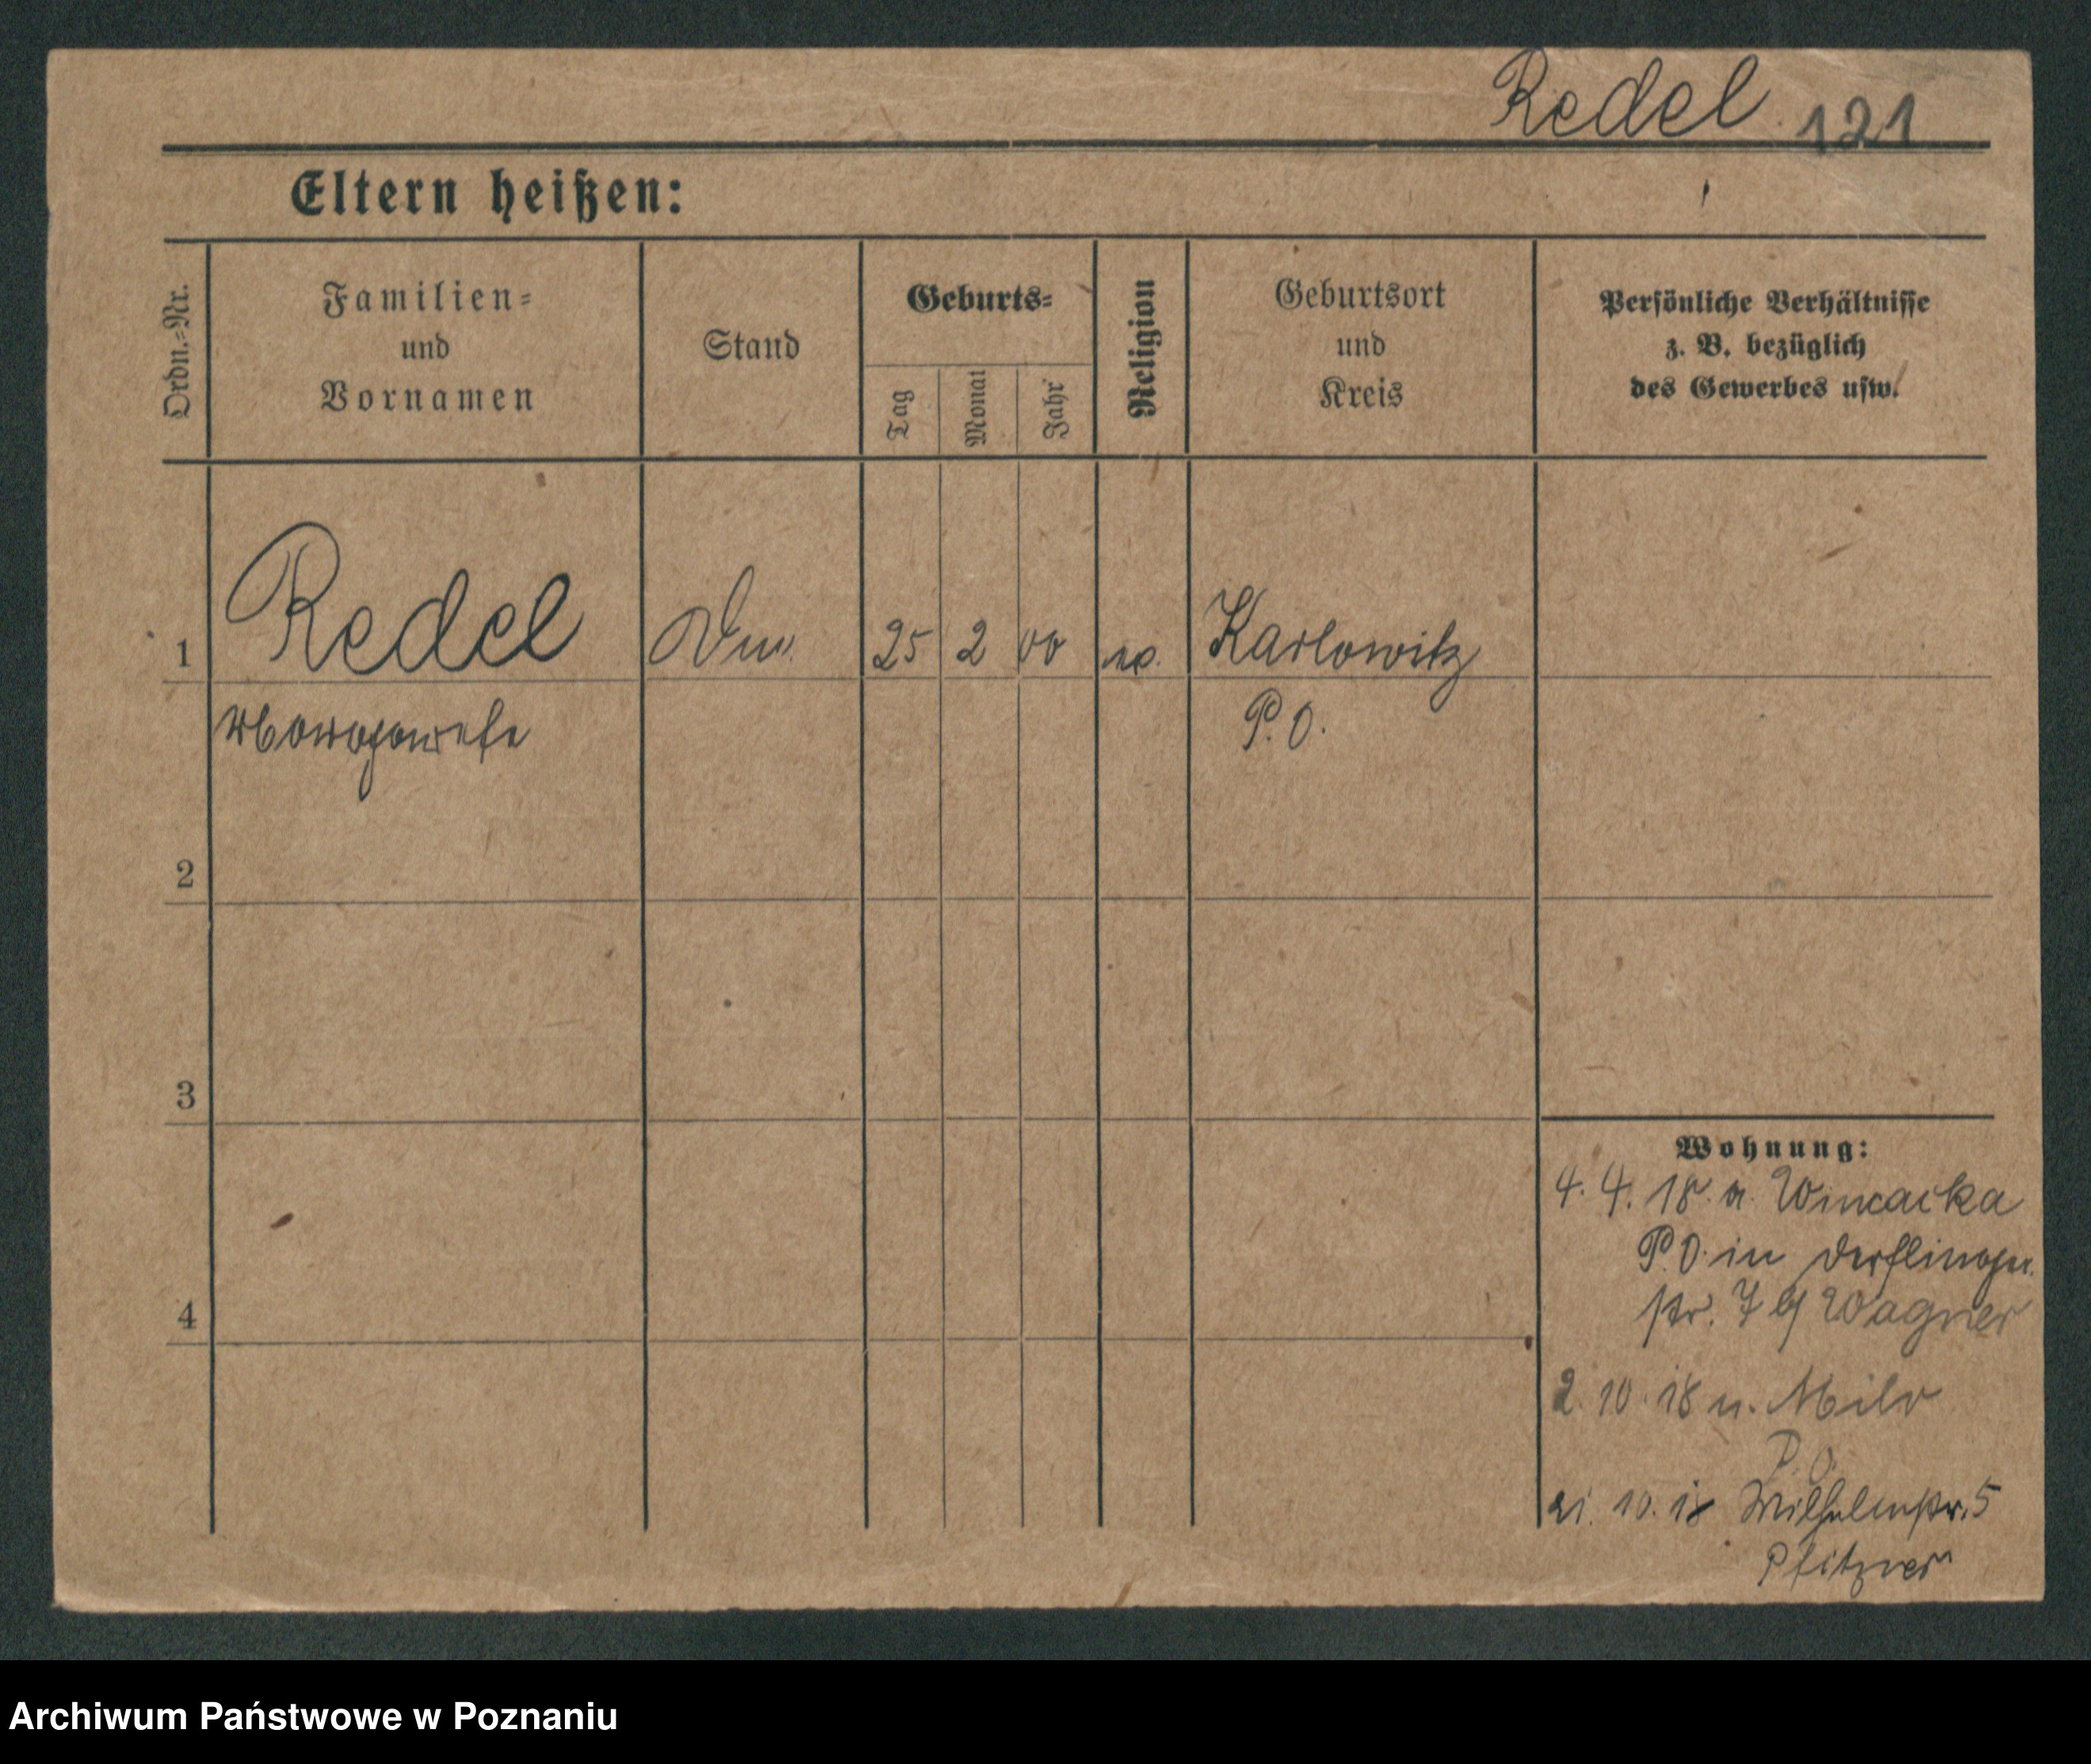 Redel 121
Eltern heißen:
Ordn.=Nr.
Familien=
und
Vornamen
Stand
Geburts=
Tag
Monat
Jahr
Religion
Geburtsort
und
Kreis
Persönliche Verhältnisse
z. B. bezüglich
des Gewerbes usw.
1 Redel 25 2 00 Karlowitz
Margarete P. O.
2
3
4
Wohnung:
4. 4. 18. a.
P. O. in Derflinger
str. 7 b/ Wagner
2. 10. 18 n. Milo
P. O.
21. 10. 18 Wilhelmstr. 5
Pfitzner
Archiwum Państwowe w Poznaniu